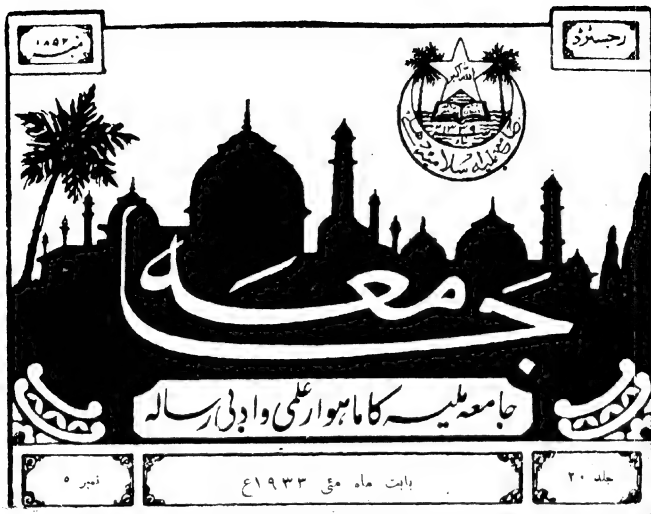 رجسٹرڈ
نمبر ۱۸۵۲
اللہ اکبر
۱۳۳۹
جامعہ ملیہ اسلامیہ دہلی
جامعہ
جامعہ ملیہ کا ماہوار علمی و ادبی رسالہ
جلد ۲۰
بابت ماہ مئی ۱۹۳۳ع
نمبر ۵